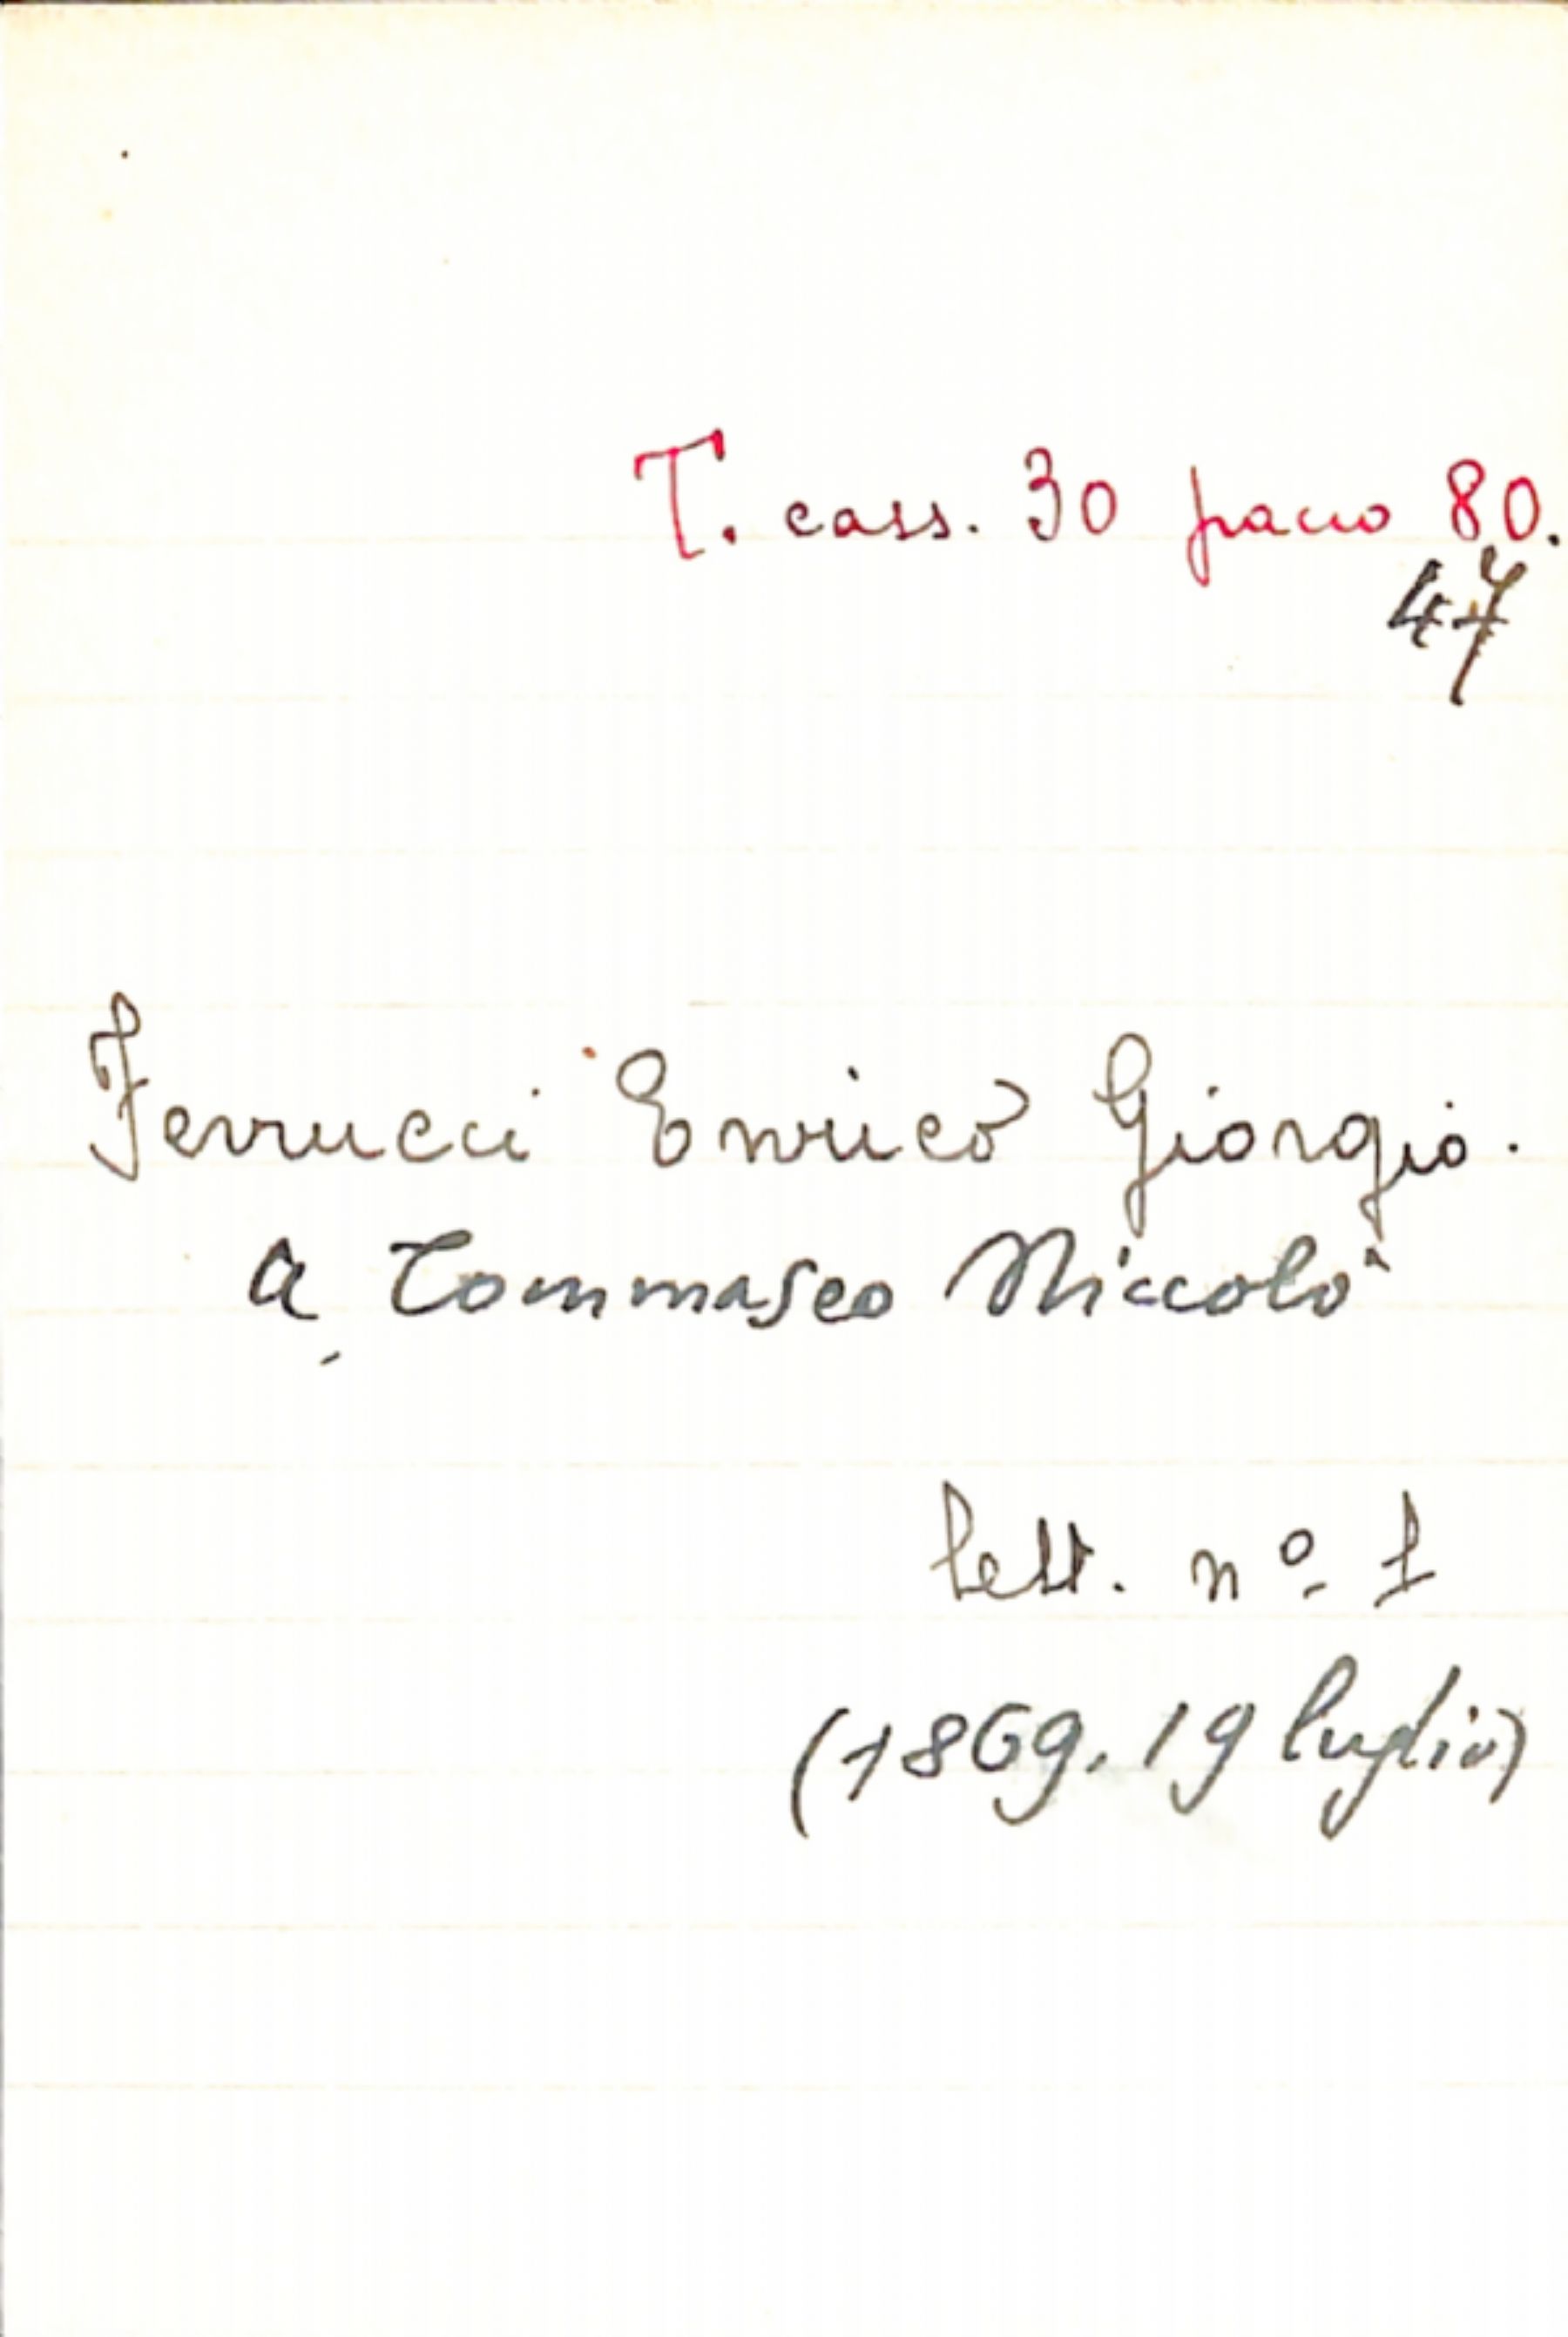 T. cass. 30 pacco 80.
47
Ferrucci Enrico Giorgio.
a Tommaseo Niccolò
lett. nº 1
(1869. 19 luglio)